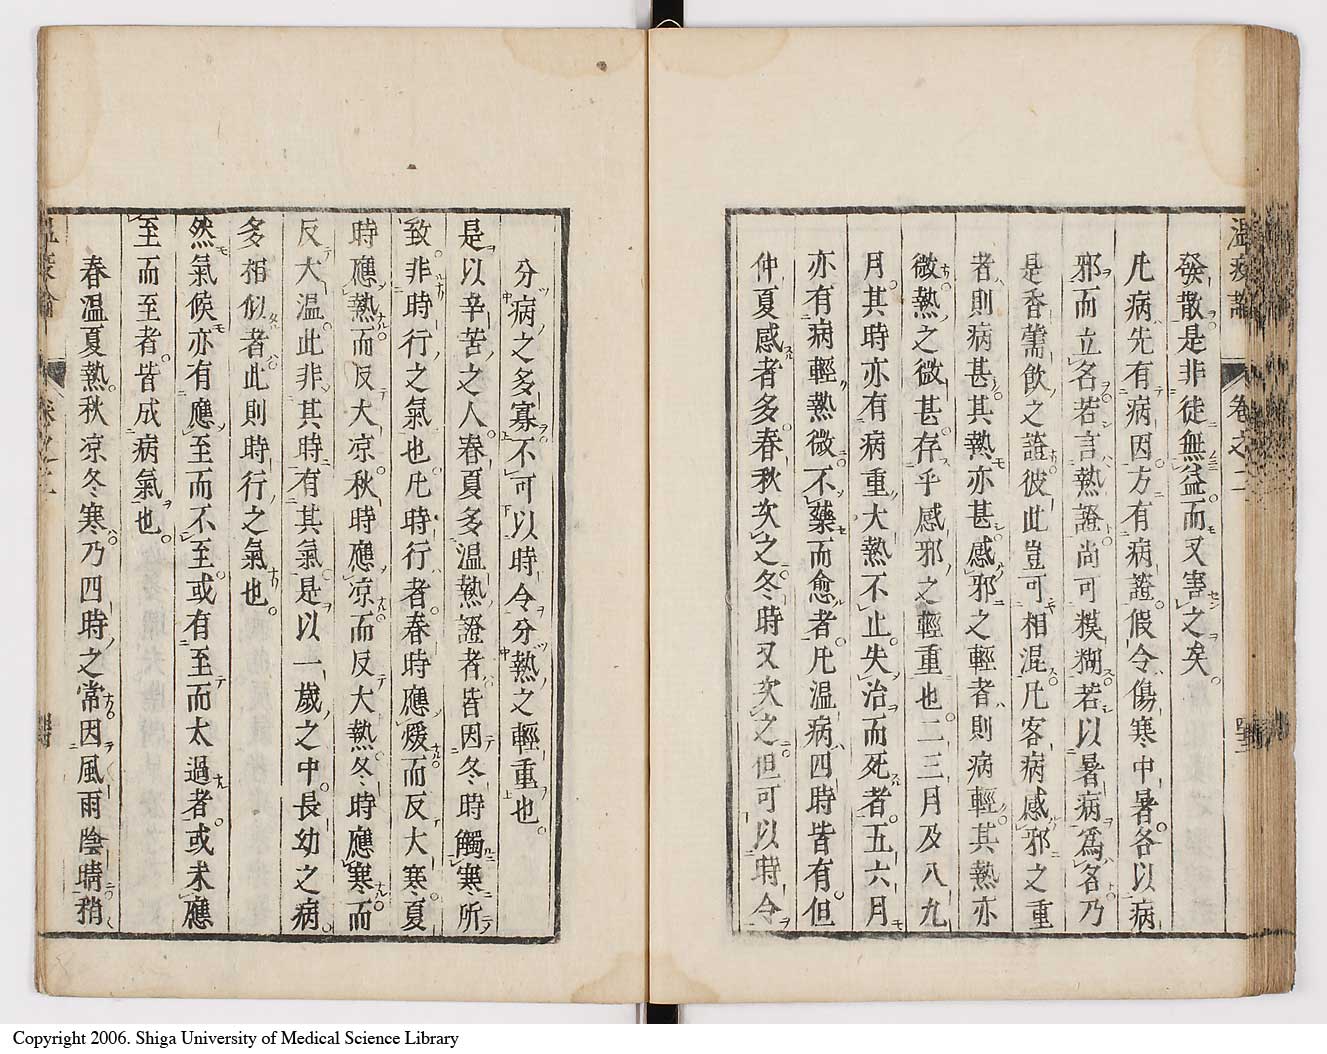 温疫論 卷之二
發散是非徒無益而又害之矣。
凡病先有病因方有病證。假令傷寒中暑各以病
邪而立名若言熱證尚可糢糊若以暑病爲名乃
是香薷飲之證彼此豈可相混凡客病感邪之重
者則病甚其熱亦甚感邪之輕者則病輕其熱亦
微熱之微甚存乎感邪之輕重也二三月及八九
月其時亦有病重大熱不止失治而死者五六月
亦有病輕熱微不藥而愈者凡温病四時皆有但
仲夏感者多春秋次之冬時又次之但可以時令
分病之多寡不可以時令分熱之輕重也。
是以辛苦之人春夏多温熱證者皆因冬時觸寒所
致非時行之氣也凡時行者春時應煖而反大寒夏
時應熱而反大凉秋時應凉而反大熱冬時應寒而
反大温此非其時有其氣是以一歲之中長幼之病
多相似者此則時行之氣也。
然氣候亦有應至而不至或有至而太過者或未應
至而至者皆成病氣也。
春温夏熱秋凉冬寒乃四時之常因風雨陰晴稍
Copyright 2006. Shiga University of Medical Science Library